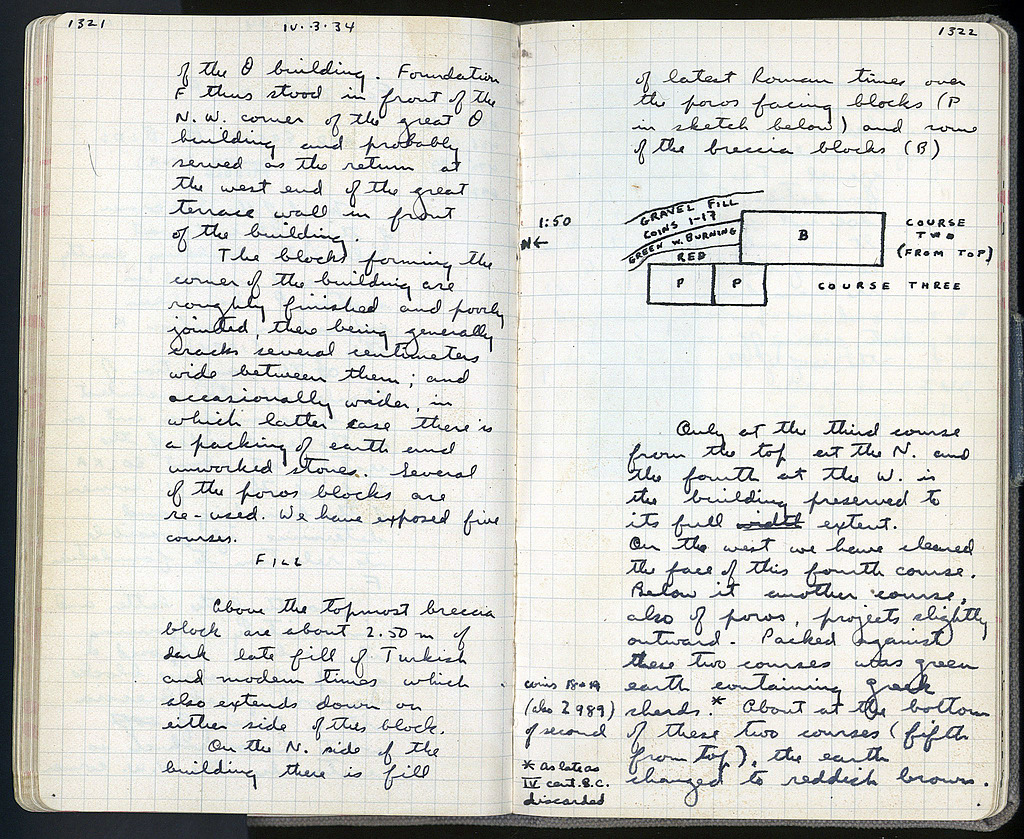 1321
IV.3.34
of the θ building. Foundation
F thus stood in front of the
N.W. corner of the great θ
building and probably
served as the return at
the west end of the great
terrace wall in front
of the building.
The blocks forming the
corner of the building are
roughly finished and poorly
jointed, there being generally
cracks several centimeters
wide between them; and
occasionally wider, in
which latter case there is
a packing of earth and
unworked stones. Several
of the poros blocks are
re-used. We have exposed five
courses.
FILL
Above the topmost breccia
block are about 2.50 m of
dark late fill of Turkish
and modern times which
also extends down on
either side of this block.
On the N. side of the
building there is fill
1322
of latest Roman times over
the poros facing blocks (P
in sketch below) and some
of the breccia blocks (B)
1:50
N←
GRAVEL FILL
COINS 1-17
GREEN W. BURNING
RED
B
P
P
COURSE
TWO
(FROM TOP)
COURSE THREE
Only at the third course
from the top at the N. and
the fourth at the W. is
the building preserved to
its full width extent.
On the west we have cleared
the face of this fourth course.
Below it another course,
also of poros, projects slightly
outward. Packed against
these two courses was green
earth containing greek
sherds.* About at the bottom
of these two courses (fifth
from top), the earth
changed to reddish brown.
coins 18+19
(also 2989)
of second
* as late as
IV cent. B.C.
discarded